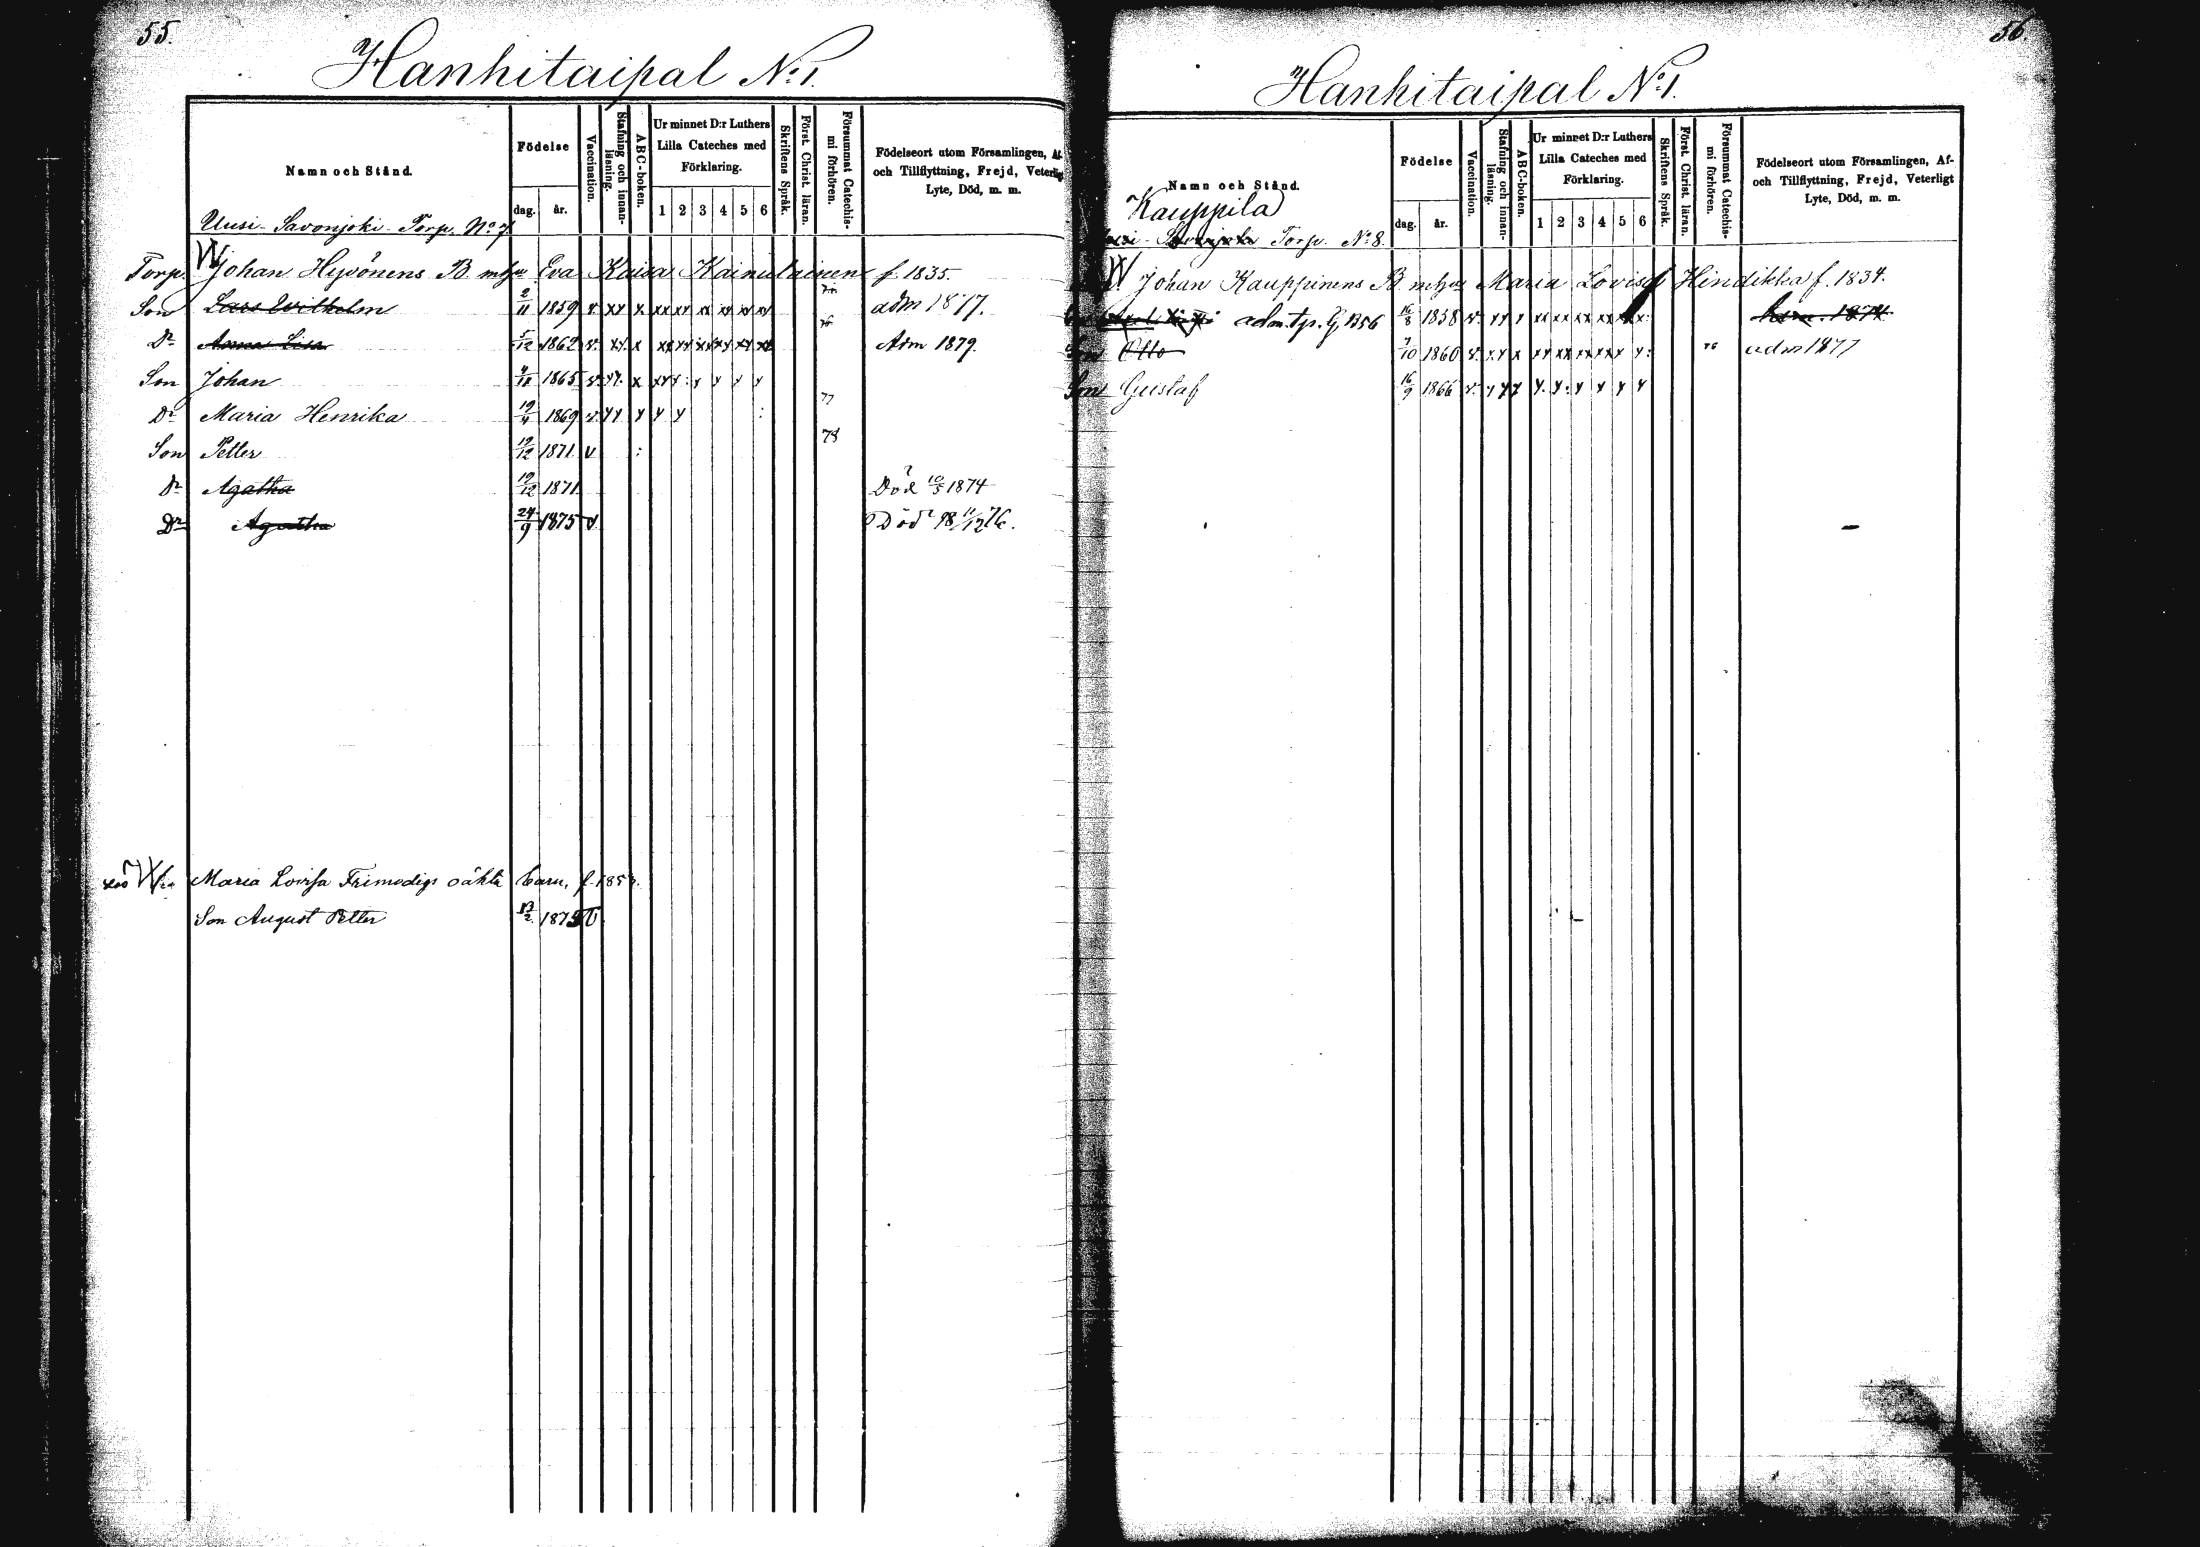 55.
Hanhitaipal No. 1.
Namn och Stånd.
Födelse
dag. år.
Vaccination.
Stafning och innan-läsning.
ABC-boken.
Ur minnet D:r Luthers Lilla Cateches med Förklaring.
1 2 3 4 5 6
Skriftens Språk.
Först. Christ. läran.
Försummat Catechis-mi förhören.
Födelseort utom Församlingen, Af-
och Tillflyttning, Frejd, Veterligt
Lyte, Död, m. m.
Uusi-Savonjoki Torp. No 7.
Torp. Johan Hyvönens B. m hu Eva Kaisa Kainulainen f. 1835.
Son Lars Wilhelm 2/11 1859 v. xx x xx xx xx xx xx xx adm 1877.
Dr Anna Lisa 5/12 1862 v. xx. x xx xx xx xx xx xx Adm 1879.
Son Johan 1865 v.
Dr Maria Henrika 19/4 1869 v. 77
Son Petter 19/12 1871 v : 78
Dr Agatha 19/12 1871 Död 10/5 1874
Dr Agatha 24/9 1875 v Död 11/12 76.
Maria Lovisa Frimodigs oäkta barn, f. 185
Son August Petter 13/2 187
56
Hanhitaipal No. 1.
Namn och Stånd.
Födelse
dag. år.
Vaccination.
Stafning och innan-läsning.
ABC-boken.
Ur minnet D:r Luthers Lilla Cateches med Förklaring.
1 2 3 4 5 6
Skriftens Språk.
Först. Christ. läran.
Försummat Catechis-mi förhören.
Födelseort utom Församlingen, Af-
och Tillflyttning, Frejd, Veterligt
Lyte, Död, m. m.
Kauppila
Torp. No 8.
Johan Kauppinens B m hu Maria Lovisa Hindikka f. 1834.
adm. tp. 1356 16/8 1858 v.
Son Otto 7/10 1860 v. xx x 76 adm 1877
Son Gustaf 16/9 1866 v.